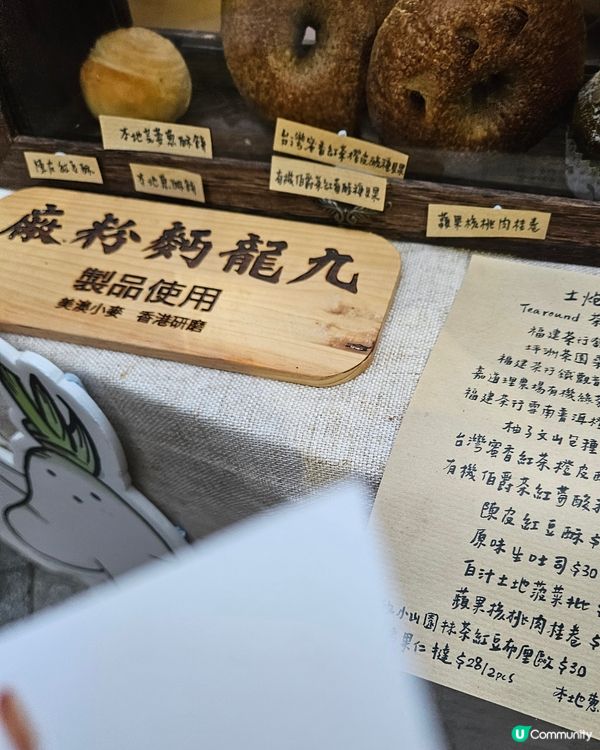 本地薑蔥酥餅
陳皮紅豆酥
本地蔥酥餅
台灣蜜香紅茶橙皮酸種貝果
有機伯爵茶紅莓酸種貝果
蘋果核桃肉桂卷
廠粉麪龍九
製品使用
美澳小麥 香港研磨
Tearound 茶
福建茶行鐵
坪洲茶園
福建茶行鐵觀音
嘉道理農場有機綠茶
福建茶行雲南普洱
柚子文山包種
台灣蜜香紅茶橙皮
有機伯爵茶紅莓酸
陳皮紅豆酥$
原味生吐司$30
白汁土地菠菜批
蘋果核桃肉桂卷$
小山園抹茶紅豆布里歐$30
果仁撻$28/2pcs
本地蔥
U Community